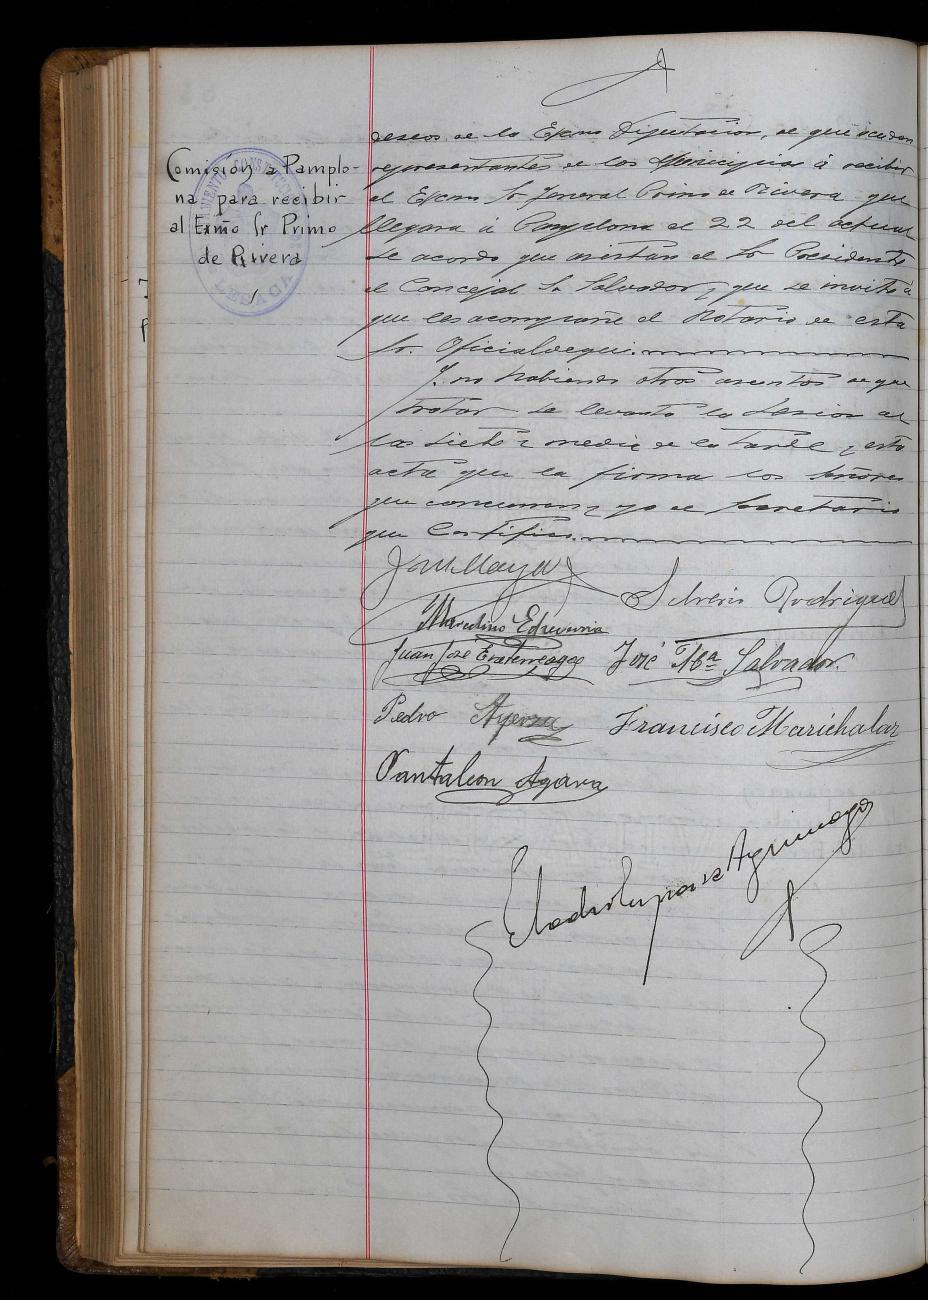 Comisión a Pamplo-
na para recibir
al Exmo Sr Primo
de Rivera
AYUNTAMIENTO CONSTITUCIONAL
LESACA
deseos de la Excma Diputacion, de que acudan
representantes de los Municipios á recibir
al Excmo Sr General Primo de Rivera que
llegara á Pamplona el 22 del actual
se acordo que asistan el Sr Presidente
el Concejal Sr Salvador y que se invite á
que les acompañe el Notario de esta
Sr. Oficialdegui.
Y no habiendo otros asuntos de que
tratar se levanto la Sesion a
las siete y media de la tarde y esta
acta que la firma los Señores
que concurren y yo el Secretario
que Certifico.
José Maya
Silverio Rodriguez
Marcelino Echeverria
Juan Jose
José Mª Salvador.
Pedro
Francisco Marichalar
Pantaleon Agara
Eladio